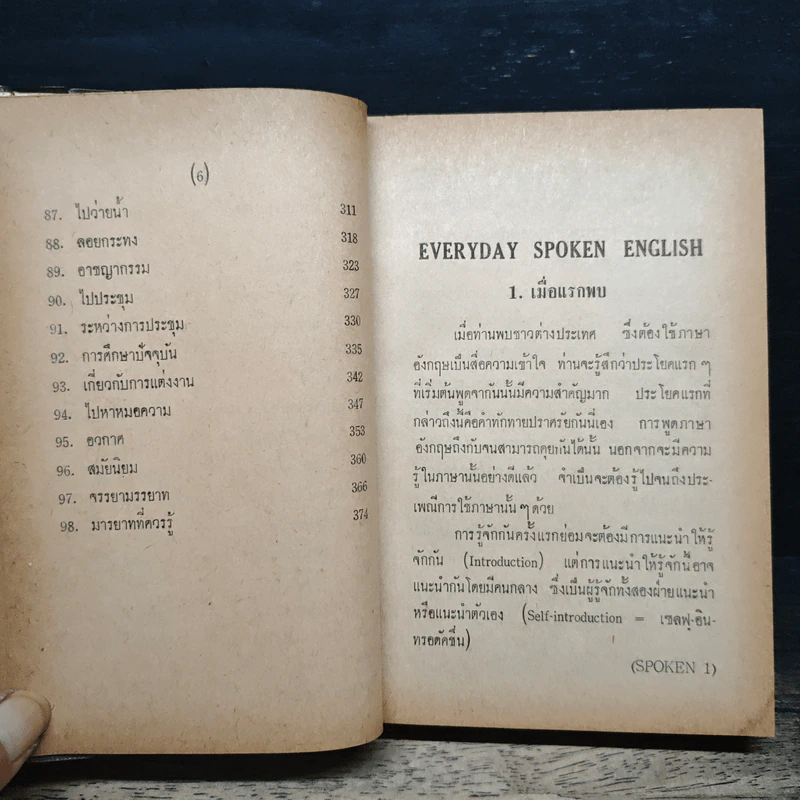 (6)
87. ไปว่ายน้ำ 311
88. ลอยกระทง 318
89. อาชญากรรม 323
90. ไปประชุม 327
91. ระหว่างการประชุม 330
92. การศึกษาปัจจุบัน 335
93. เกี่ยวกับการแต่งงาน 342
94. ไปหาหมอความ 347
95. อวกาศ 353
96. สมัยนิยม 360
97. จรรยามรรยาท 366
98. มารยาทที่ควรรู้ 374
EVERYDAY SPOKEN ENGLISH
1. เมื่อแรกพบ
เมื่อท่านพบชาวต่างประเทศ ซึ่งต้องใช้ภาษา
อังกฤษเป็นสื่อความเข้าใจ ท่านจะรู้สึกว่าประโยคแรก ๆ
ที่เริ่มต้นพูดจากันนั้นมีความสำคัญมาก ประโยคแรกที่
กล่าวถึงนี้คือคำทักทายปราศรัยกันนี่เอง การพูดภาษา
อังกฤษถึงกับจนสามารถคุยกันได้นั้น นอกจากจะมีความ
รู้ในภาษานั้นอย่างดีแล้ว จำเป็นจะต้องรู้ไปจนถึงประ-
เพณีการใช้ภาษานั้น ๆ ด้วย
การรู้จักกันครั้งแรกย่อมจะต้องมีการแนะนำให้รู้
จักกัน (Introduction) แต่การแนะนำให้รู้จักนี้อาจ
แนะนำกันโดยมีคนกลาง ซึ่งเป็นผู้รู้จักทั้งสองฝ่ายแนะนำ
หรือแนะนำตัวเอง (Self-introduction = เซลฟฺ-อิน-
ทรอดัคชั่น)
(SPOKEN 1)